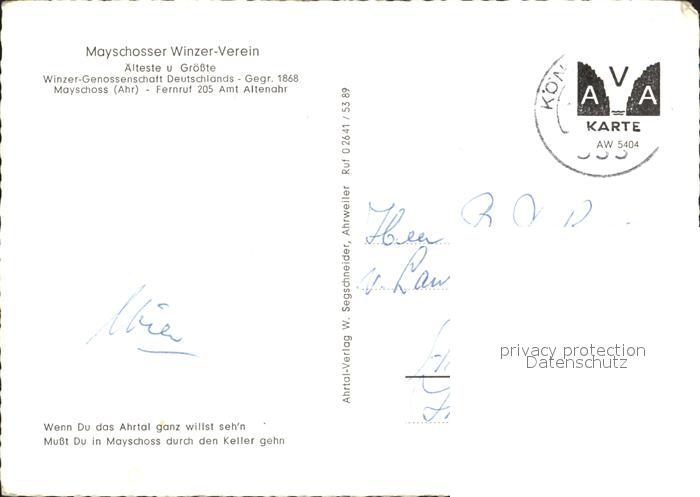 Mayschosser Winzer-Verein
Älteste u Größte
Winzer-Genossenschaft Deutschlands - Gegr. 1868
Mayschoss (Ahr) - Fernruf 205 Amt Altenahr
Ahrtal-Verlag W. Segschneider, Ahrweiler Ruf 02641 / 53 89
KÖN
AVA
KARTE
AW 5404
Herrn
privacy protection
Datenschutz
Wenn Du das Ahrtal ganz willst seh'n
Mußt Du in Mayschoss durch den Keller gehn